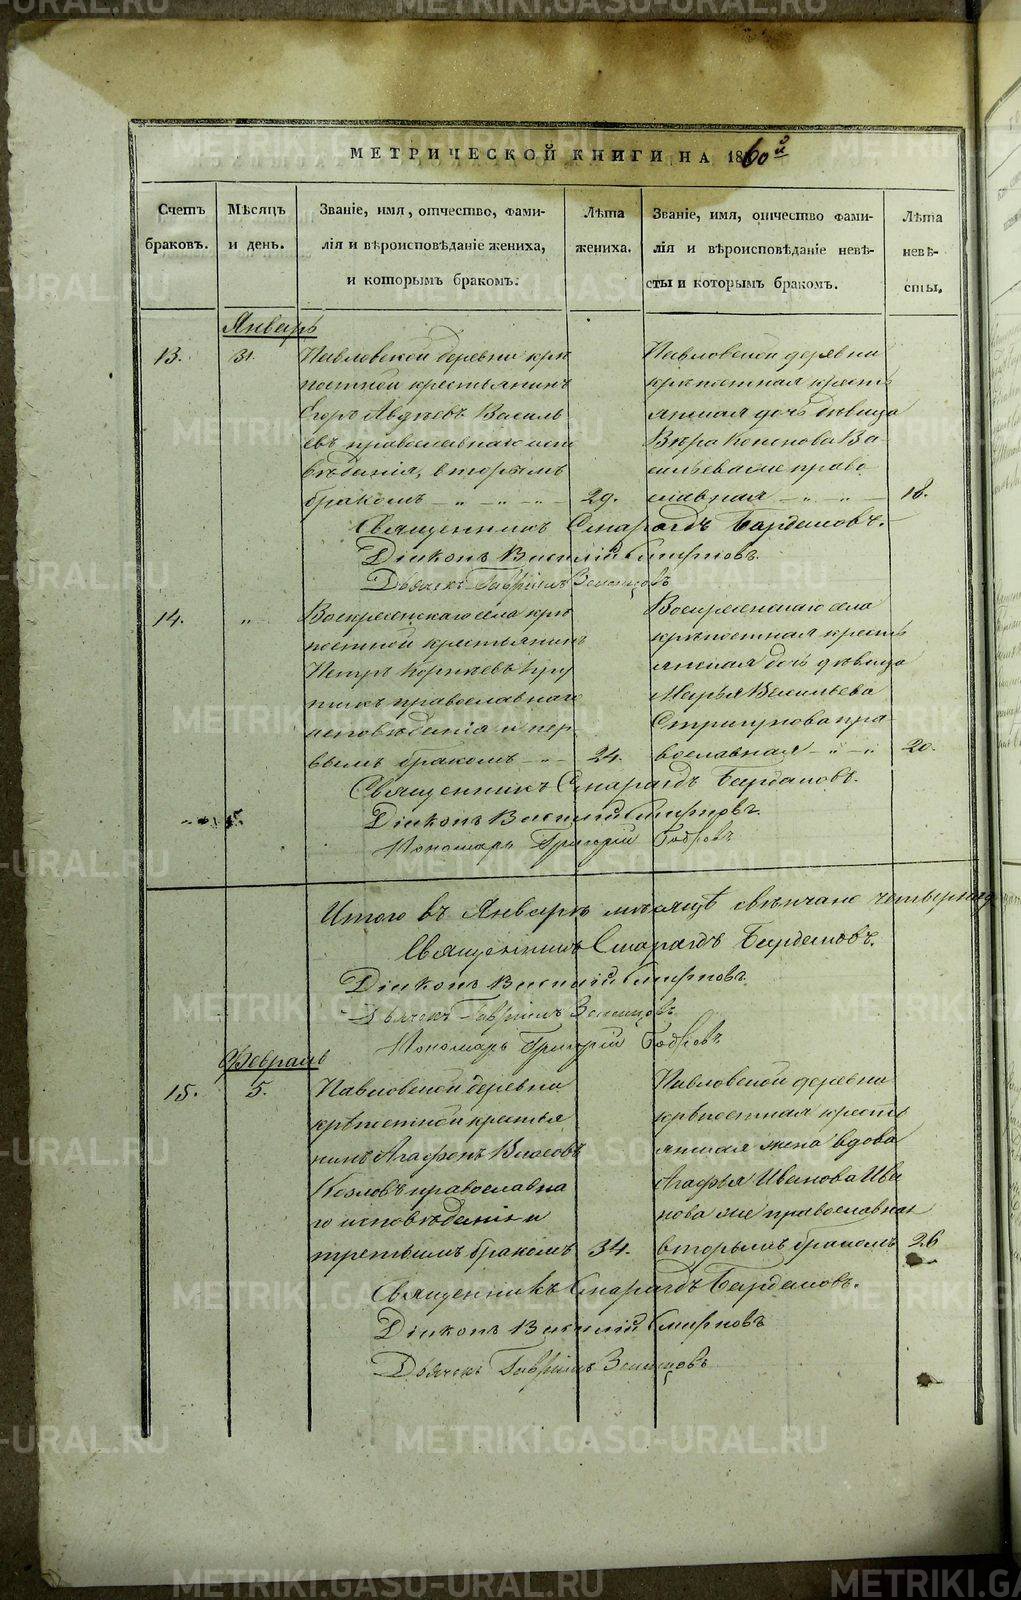 МЕТРИЧЕСКОЙ КНИГИ НА 1860й
Счетъ браковъ.
Мѣсяцъ и день.
Званіе, имя, отчество, фами-
лія и вѣроисповѣданіе жениха,
и которымъ бракомъ.
Лѣта жениха.
Званіе, имя, отчество фами-
лія и вѣроисповѣданіе невѣ-
сты и которымъ бракомъ.
Лѣта невѣ-
сты.
Январь
13.
31.
Павловской деревни крѣ
постной крестьянинъ
Егоръ Авдѣевъ Василь
евъ православнаго испо
вѣданія, вторымъ
бракомъ
29.
Павловской деревни
крѣпостная кресть
янская дочь дѣвица
Вѣра Кононова Ва
сильева же право
славная
18.
Священникъ Смарагдъ Бардамовъ.
Діаконъ Василій Смирновъ.
Дьячекъ Гавріилъ
14.
Воскресенскаго села крѣ
постной крестьянинъ
Петръ Корнѣевъ
православнаго
исповѣданія и пер
вымъ бракомъ
24.
Воскресенскаго села
крѣпостная кресть
янская дочь дѣвица
Марья Васильева
Стригунова пра
вославная
20.
Священникъ Смарагдъ Бардамовъ.
Діаконъ Василій Смирновъ.
Пономарь Григорій Бобровъ
Итого въ Январѣ мѣсяцѣ свѣнчано
Священникъ Смарагдъ Бардамовъ.
Діаконъ Василій Смирновъ.
Дьячекъ Гавріилъ
Пономарь Григорій Бобровъ
Февраль
15.
5.
Павловской деревни
крѣпостной крестья
нинъ Агафонъ Власовъ
Козловъ православна
го исповѣданія и
третьимъ бракомъ
34.
Павловской деревни
крѣпостная кресть
янская жена вдова
Агафья Иванова Ива
нова же православная
вторымъ бракомъ
26
Священникъ Смарагдъ Бардамовъ.
Діаконъ Василій Смирновъ
Дьячекъ Гавріилъ
METRIKI.GASO-URAL.RU